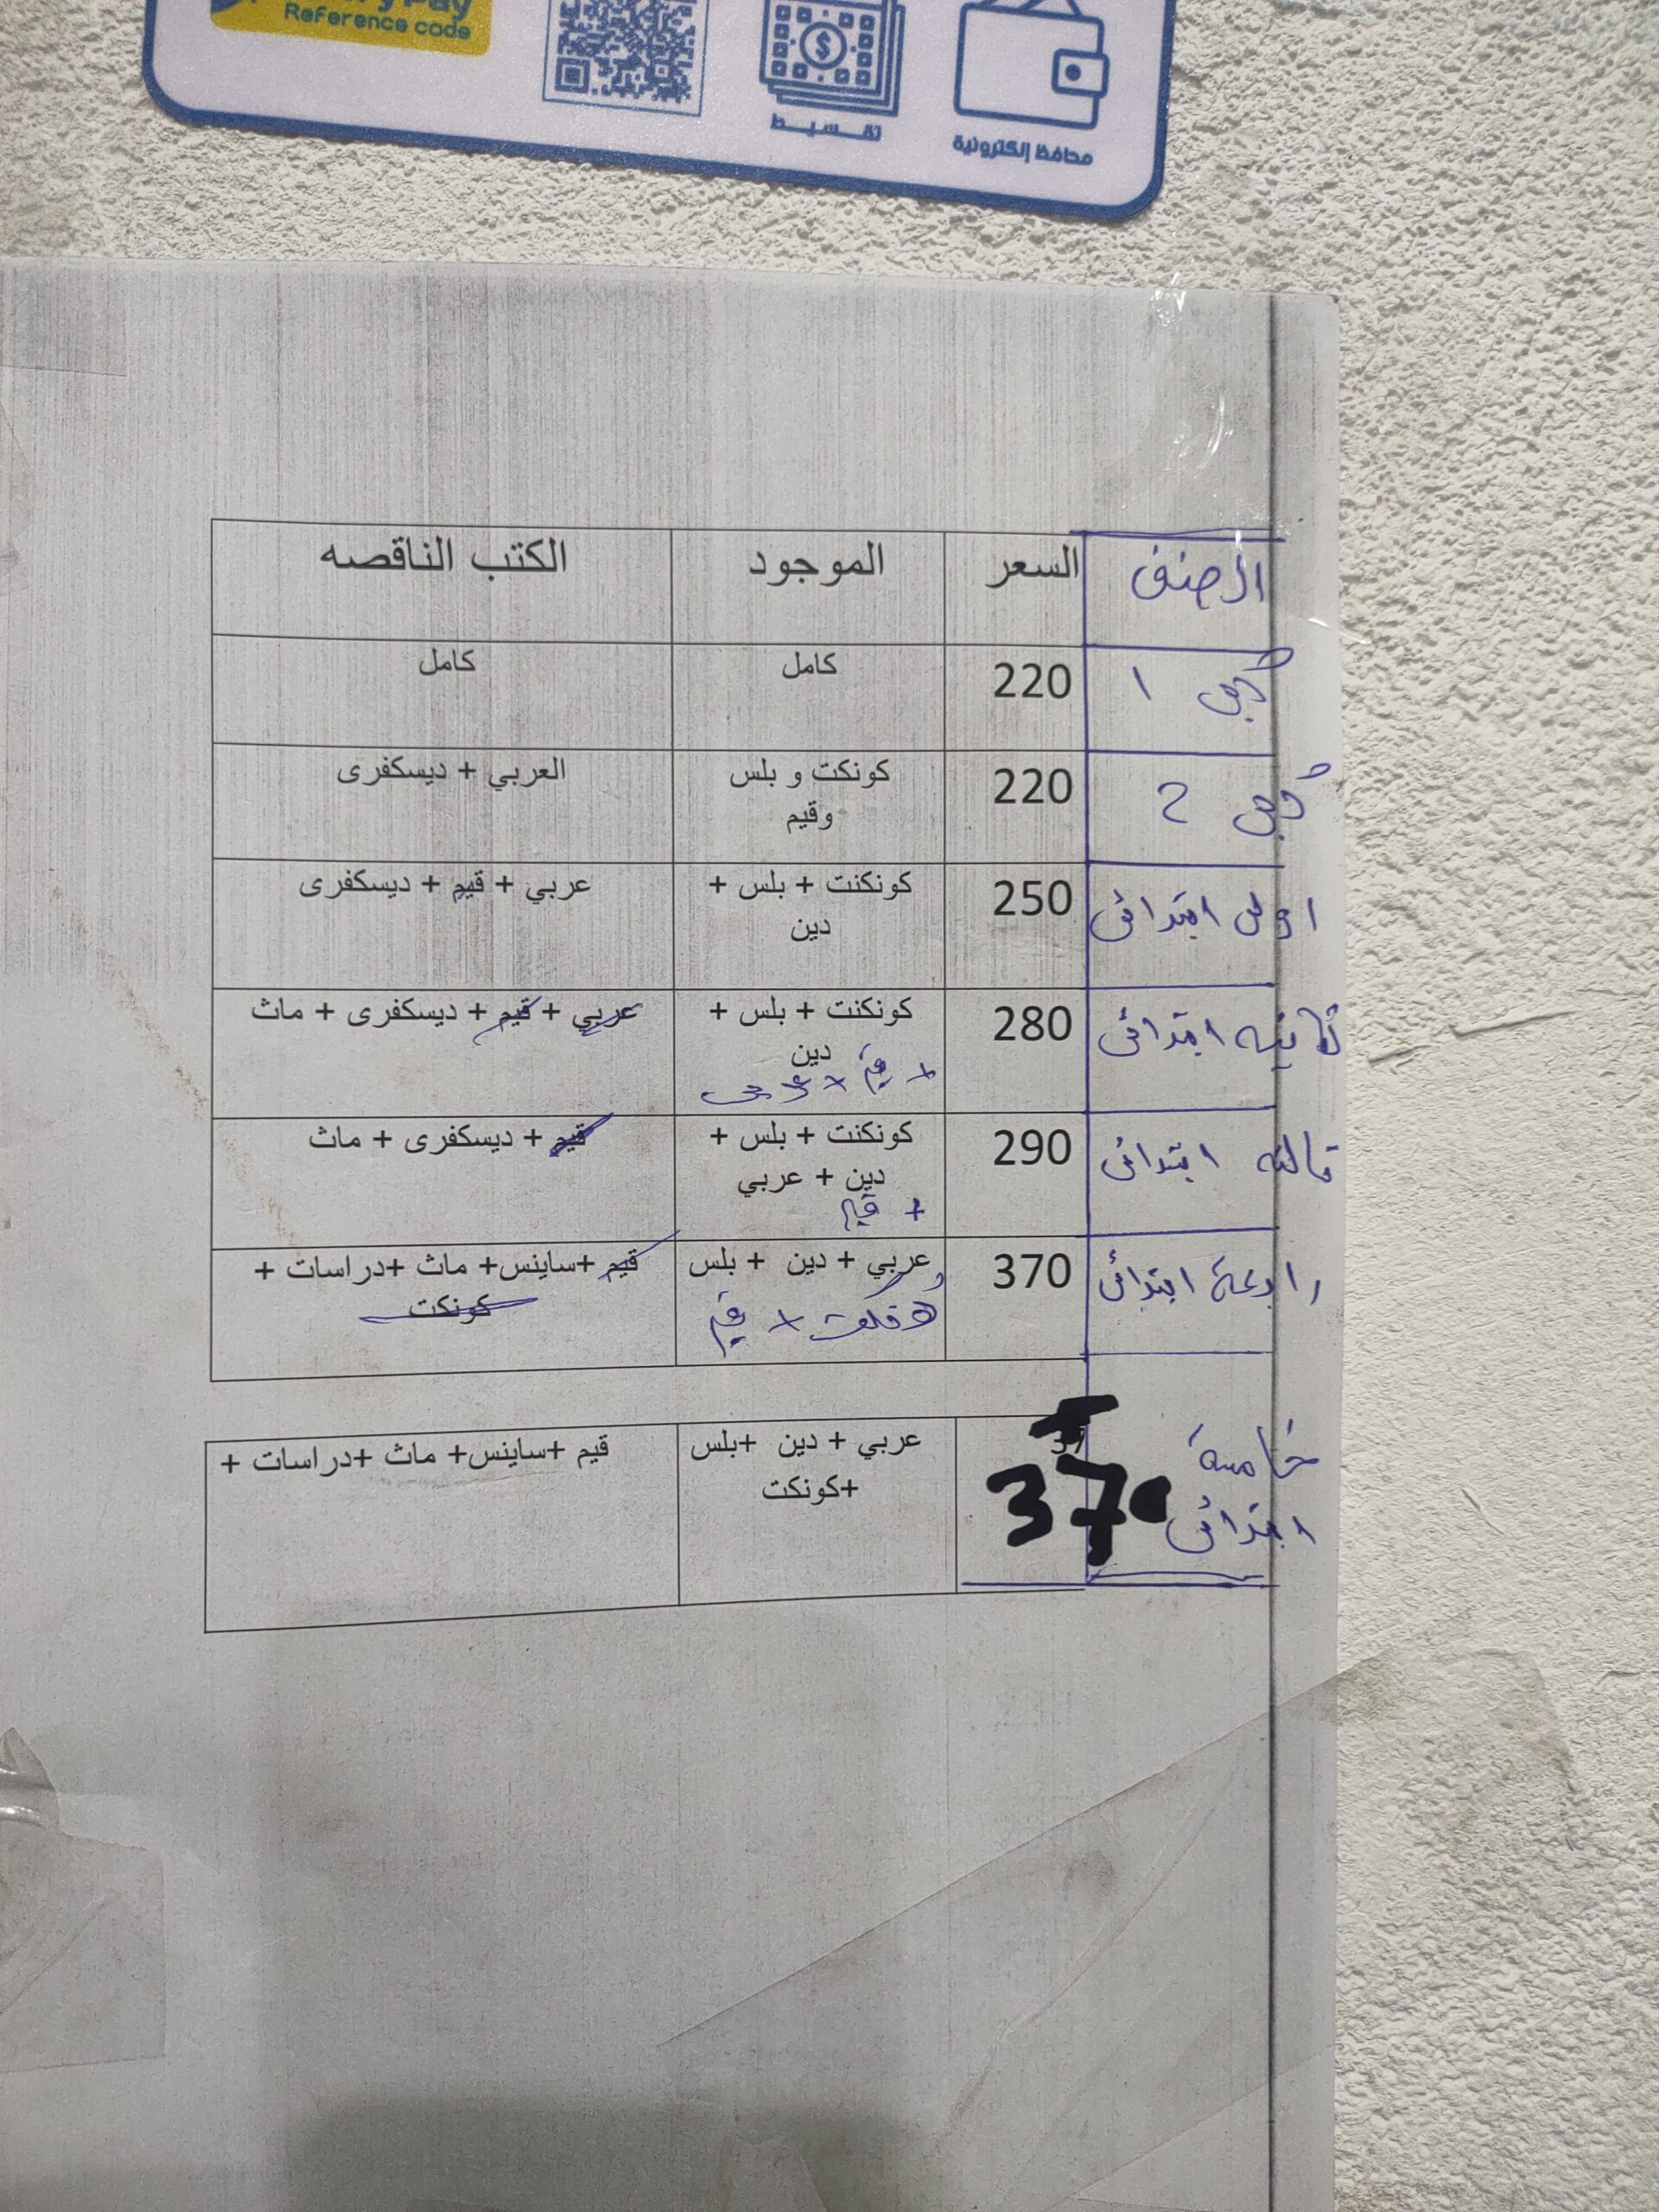 Reference code
تقسيط
محافظ إلكترونية
الصنف السعر الموجود الكتب الناقصه
كجى 1 220 كامل كامل
كجى 2 220 كونكت و بلس العربي + ديسكفرى
وقيم
اولى ابتدائى 250 كونكنت + بلس + عربي + قيم + ديسكفرى
دين
ثانيه ابتدائى 280 كونكنت + بلس + عربي + قيم + ديسكفرى + ماث
دين
+ قيم + عربى
ثالثه ابتدائى 290 كونكنت + بلس + قيم + ديسكفرى + ماث
دين + عربي
+ قيم
رابعة ابتدائى 370 عربي + دين + بلس قيم +ساينس+ ماث +دراسات +
كونكت + قيم كونكت
خامسة عربي + دين +بلس قيم +ساينس+ ماث +دراسات +
ابتدائى 370 +كونكت